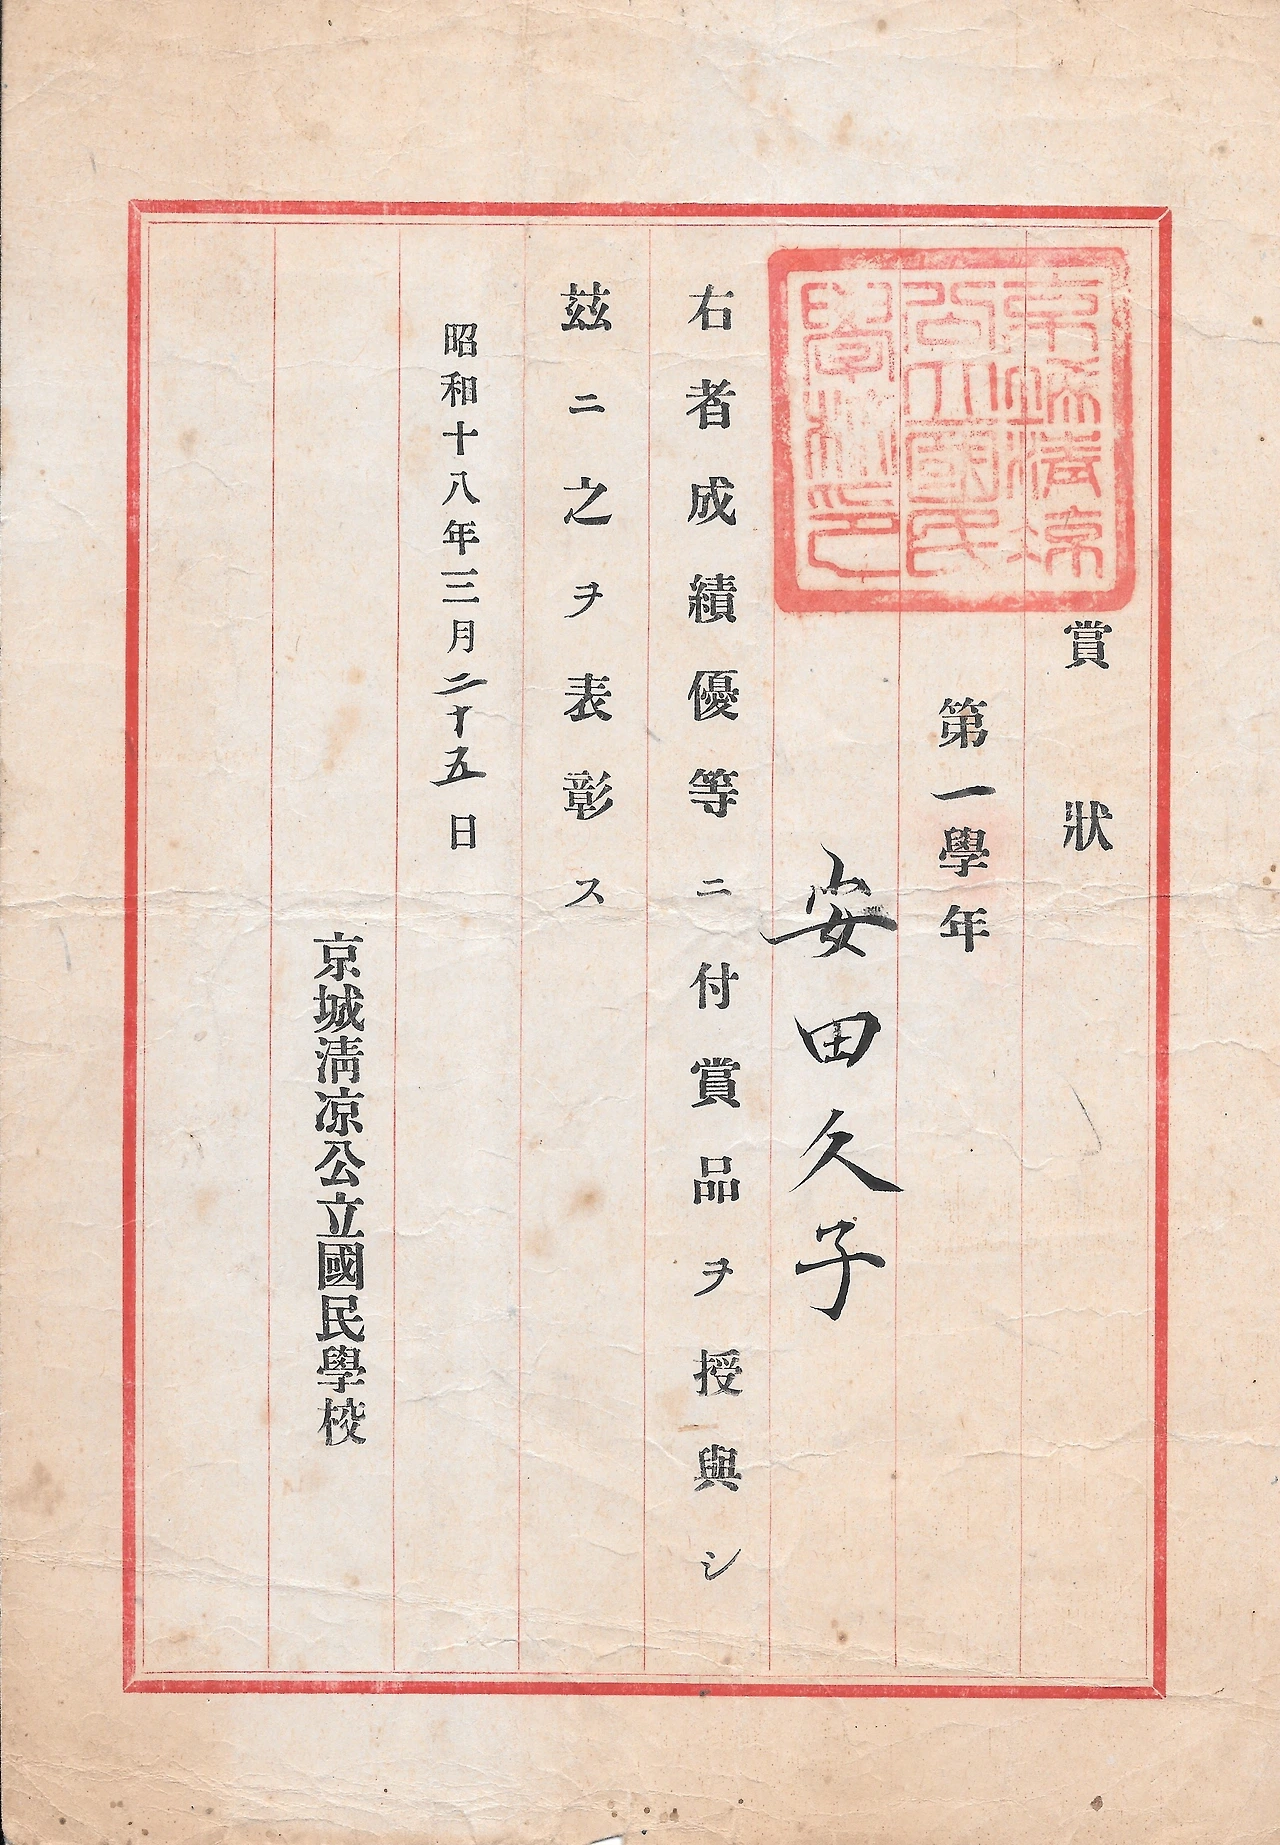 賞狀
京城淸凉
公立國民
學校印
第一學年
安田久子
右者成績優等ニ付賞品ヲ授與シ
茲ニ之ヲ表彰ス
昭和十八年三月二十五日
京城淸凉公立國民學校